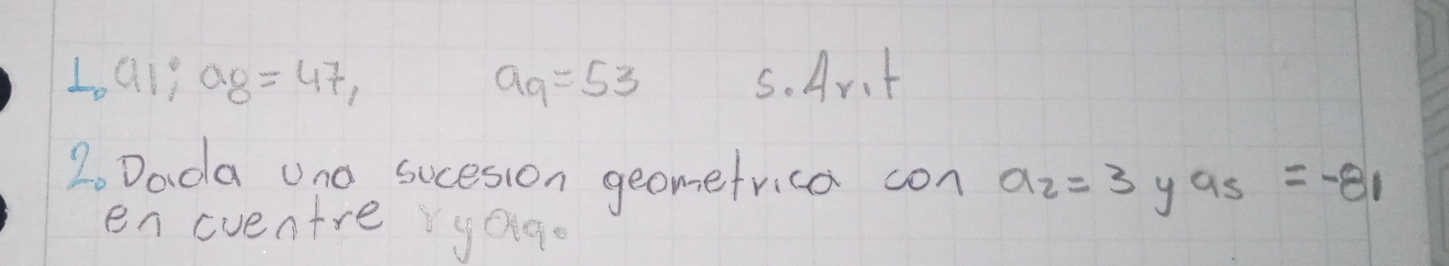 1. a1; a8 = 47, a9 = 53 S. Arit
2. Dada una sucesion geometrica con a2 = 3 y a5 = -81
en cuentre r y a9.